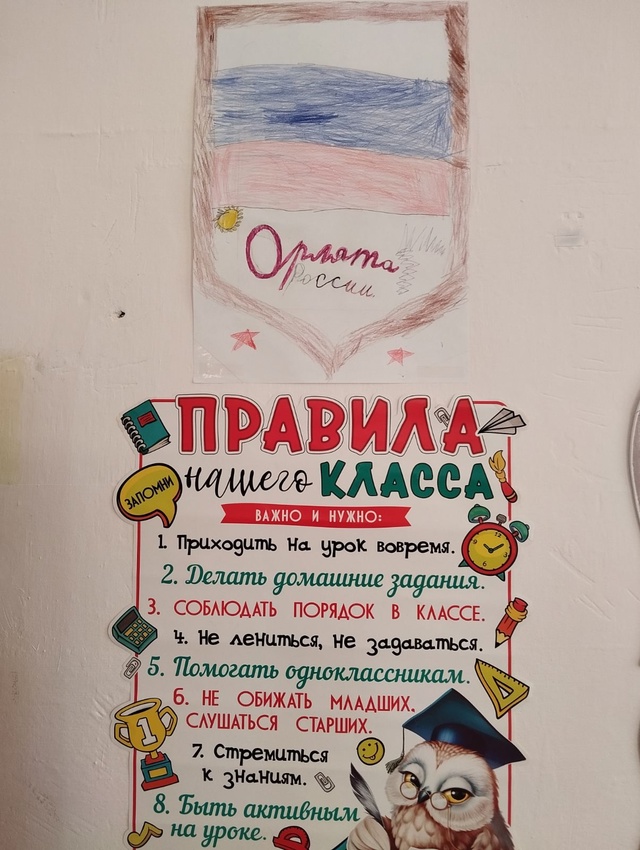 Орлята
России
ПРАВИЛА
нашего КЛАССА
ЗАПОМНИ
ВАЖНО И НУЖНО:
1. Приходить на урок вовремя.
2. Делать домашние задания.
3. СОБЛЮДАТЬ ПОРЯДОК В КЛАССЕ.
4. Не лениться, не задаваться.
5. Помогать одноклассникам.
6. НЕ ОБИЖАТЬ МЛАДШИХ,
СЛУШАТЬСЯ СТАРШИХ.
7. Стремиться
к знаниям.
8. Быть активным
на уроке.